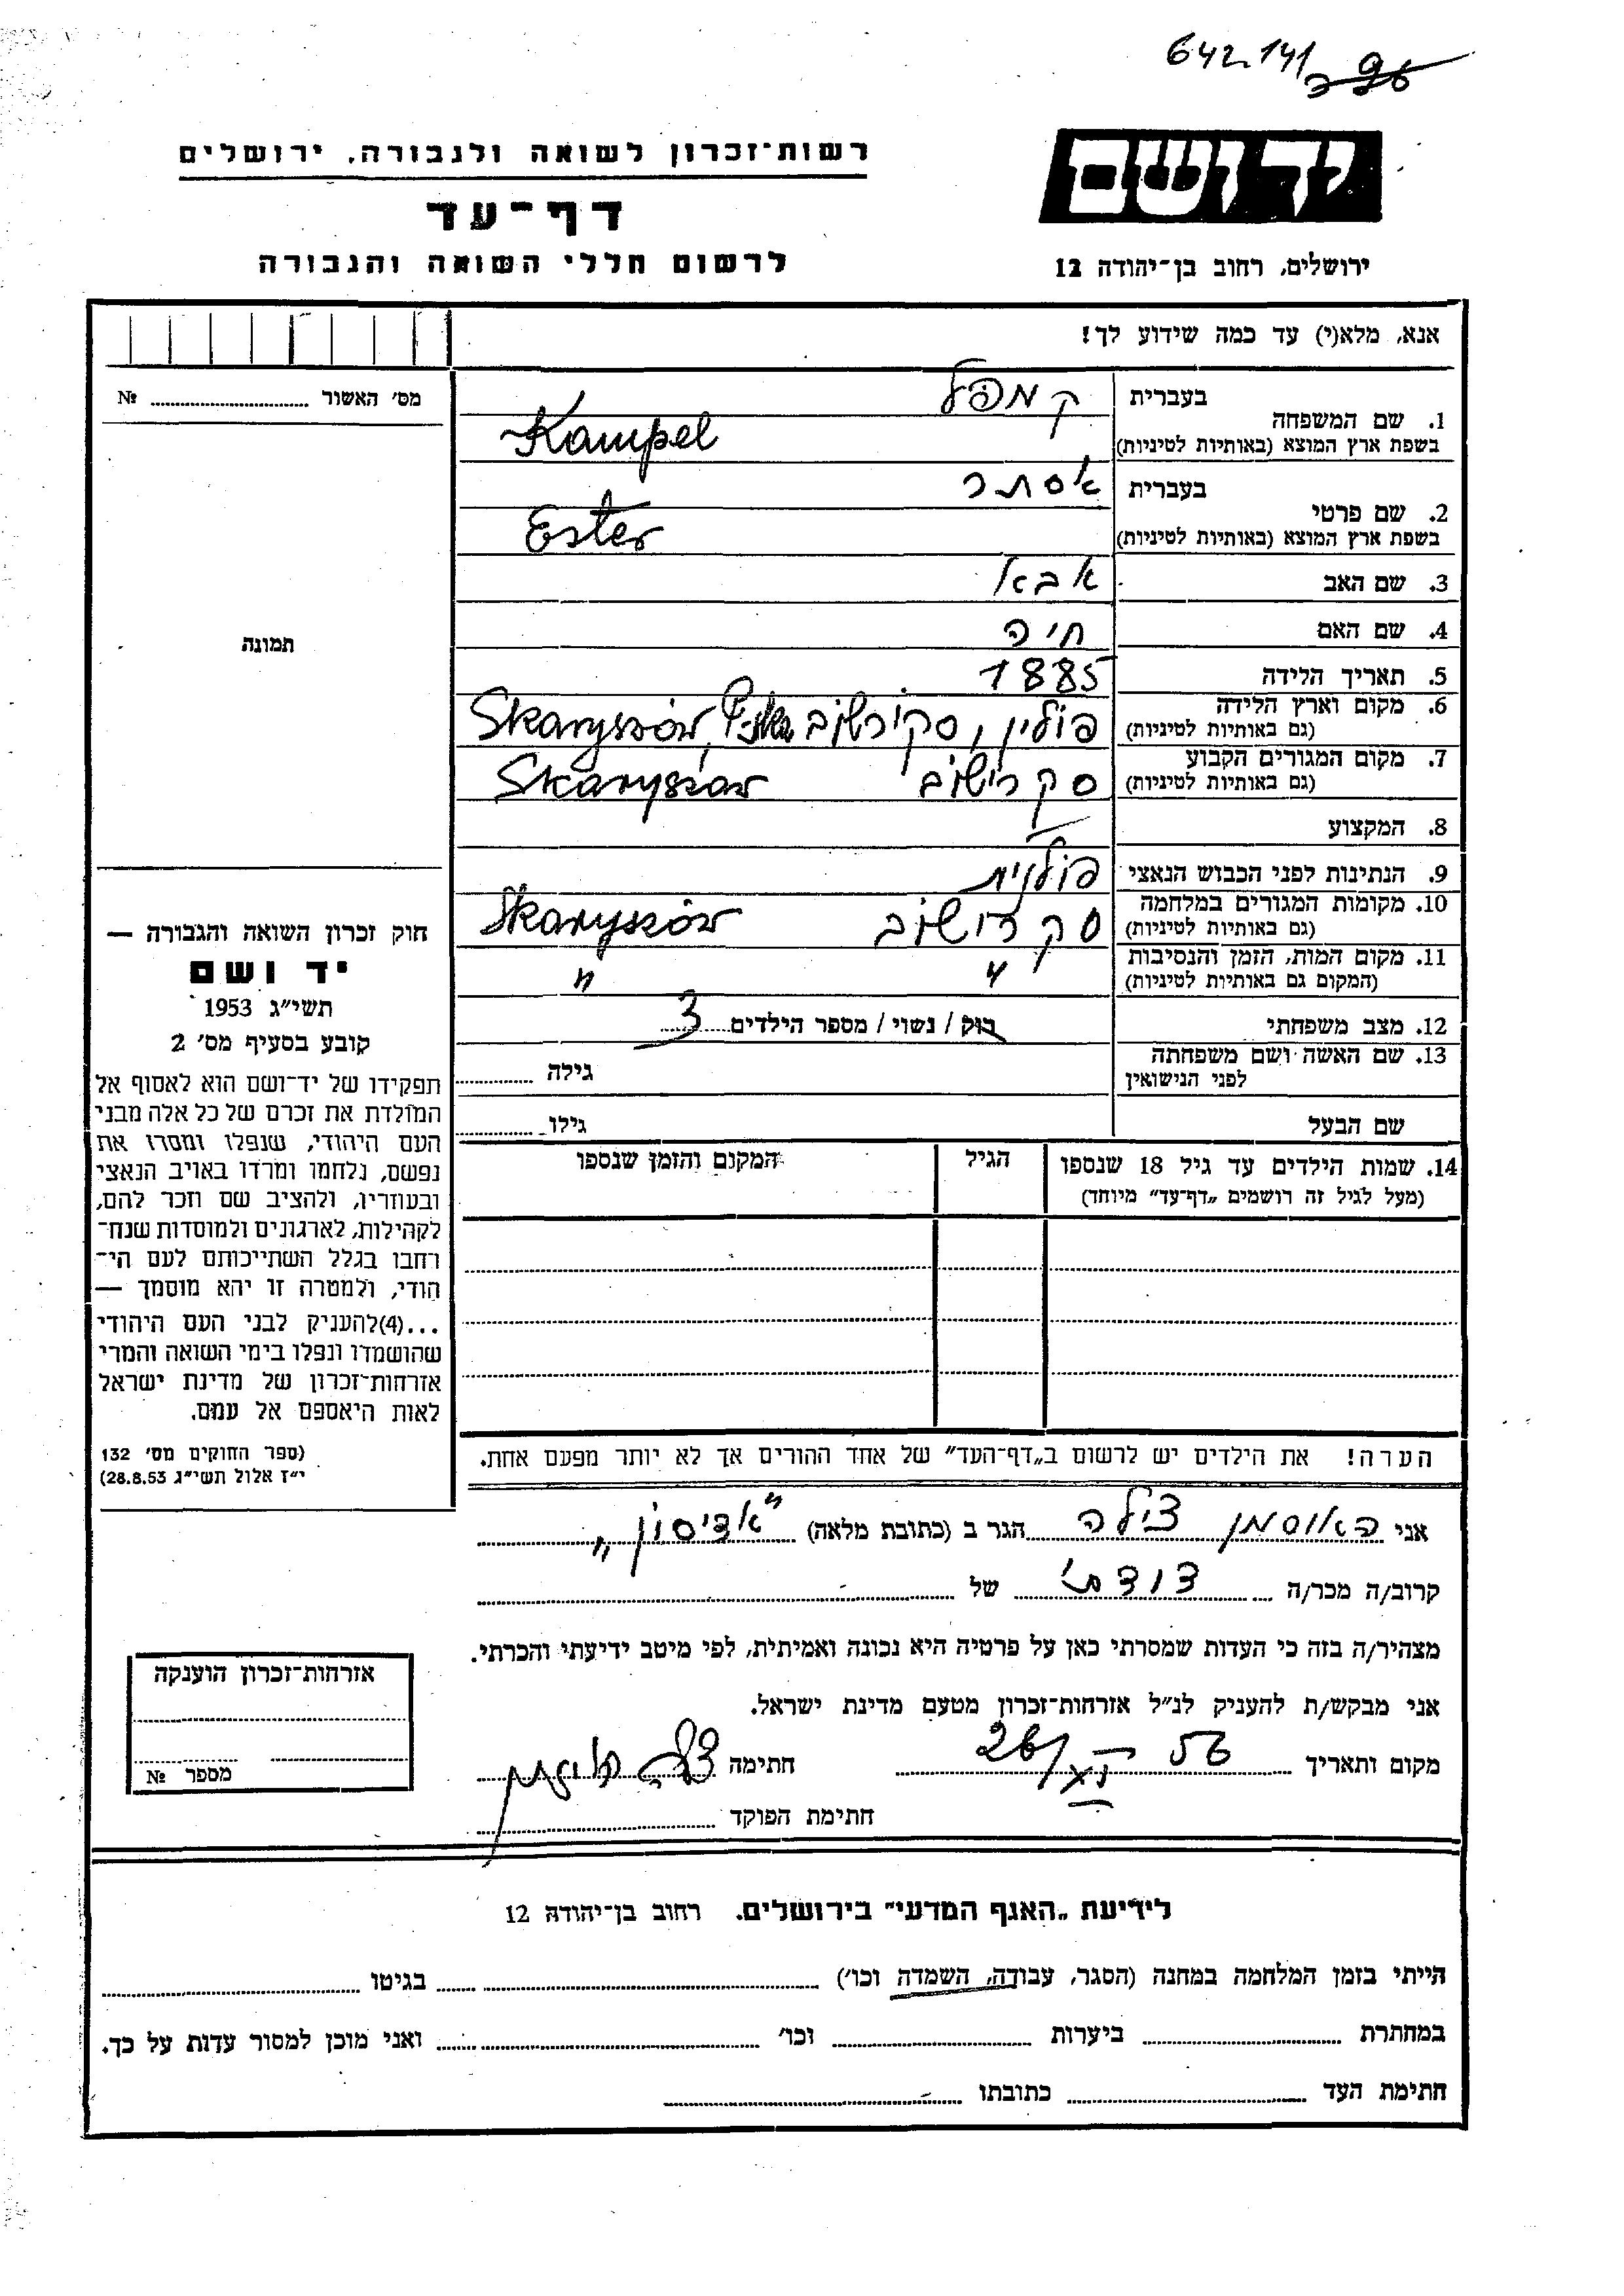 642.141
96
רשות־זכרון לשואה ולגבורה, ירושלים
יד ושם
דף־עד
לרשום חללי השואה והגבורה
ירושלים, רחוב בן־יהודה 12
אנא, מלא(י) עד כמה שידוע לך!
מס׳ האשור № 
1. שם המשפחה בעברית קמפל
בשפת ארץ המוצא (באותיות לטיניות) Kampel
2. שם פרטי בעברית אסתר
בשפת ארץ המוצא (באותיות לטיניות) Ester
3. שם האב אבא
4. שם האם חיה
5. תאריך הלידה 1885
6. מקום וארץ הלידה (גם באותיות לטיניות) פולין, Skaryszów
7. מקום המגורים הקבוע (גם באותיות לטיניות) סקרישוב Skaryszów
8. המקצוע —
9. הנתינות לפני הכבוש הנאצי פולנית
10. מקומות המגורים במלחמה (גם באותיות לטיניות) סקרישוב Skaryszów
11. מקום המות, הזמן והנסיבות (המקום גם באותיות לטיניות) " "
12. מצב משפחתי רוק / נשוי / מספר הילדים 3
13. שם האשה ושם משפחתה לפני הנישואין גילה
שם הבעל גילו
14. שמות הילדים עד גיל 18 שנספו (מעל לגיל זה רושמים „דף־עד" מיוחד)
הגיל
המקום והזמן שנספו
תמונה
חוק זכרון השואה והגבורה —
יד ושם
תשי״ג 1953
קובע בסעיף מס׳ 2
תפקידו של יד־ושם הוא לאסוף אל
המולדת את זכרם של כל אלה מבני
העם היהודי, שנפלו ומסרו את
נפשם, נלחמו ומרדו באויב הנאצי
ובעוזריו, ולהציב שם וזכר להם,
לקהילות, לארגונים ולמוסדות שנח־
רחבו בגלל השתייכותם לעם הי־
הודי, ולמטרה זו יהא מוסמך —
...(4)להעניק לבני העם היהודי
שהושמדו ונפלו בימי השואה והמרי
אזרחות־זכרון של מדינת ישראל
לאות היאספם אל עמם.
(ספר החוקים מס׳ 132
י״ז אלול תשי״ג 28.8.53)
הערה! את הילדים יש לרשום ב„דף־העד" של אחד ההורים אך לא יותר מפעם אחת.
אני האוסמן צילה הגר ב (כתובת מלאה) "אדיסון"
קרוב/ה מכר/ה דודתי של
מצהיר/ה בזה כי העדות שמסרתי כאן על פרטיה היא נכונה ואמיתית, לפי מיטב ידיעתי והכרתי.
אני מבקש/ת להעניק לנ״ל אזרחות־זכרון מטעם מדינת ישראל.
מקום ותאריך 26/XI 56 חתימה
חתימת הפוקד
אזרחות־זכרון הוענקה
מספר №
לידיעת „האגף המדעי" בירושלים. רחוב בן־יהודה 12
הייתי בזמן המלחמה במחנה (הסגר, עבודה, השמדה וכו׳) בגיטו
במחתרת ביערות וכו׳ ואני מוכן למסור עדות על כך.
חתימת העד כתובתו